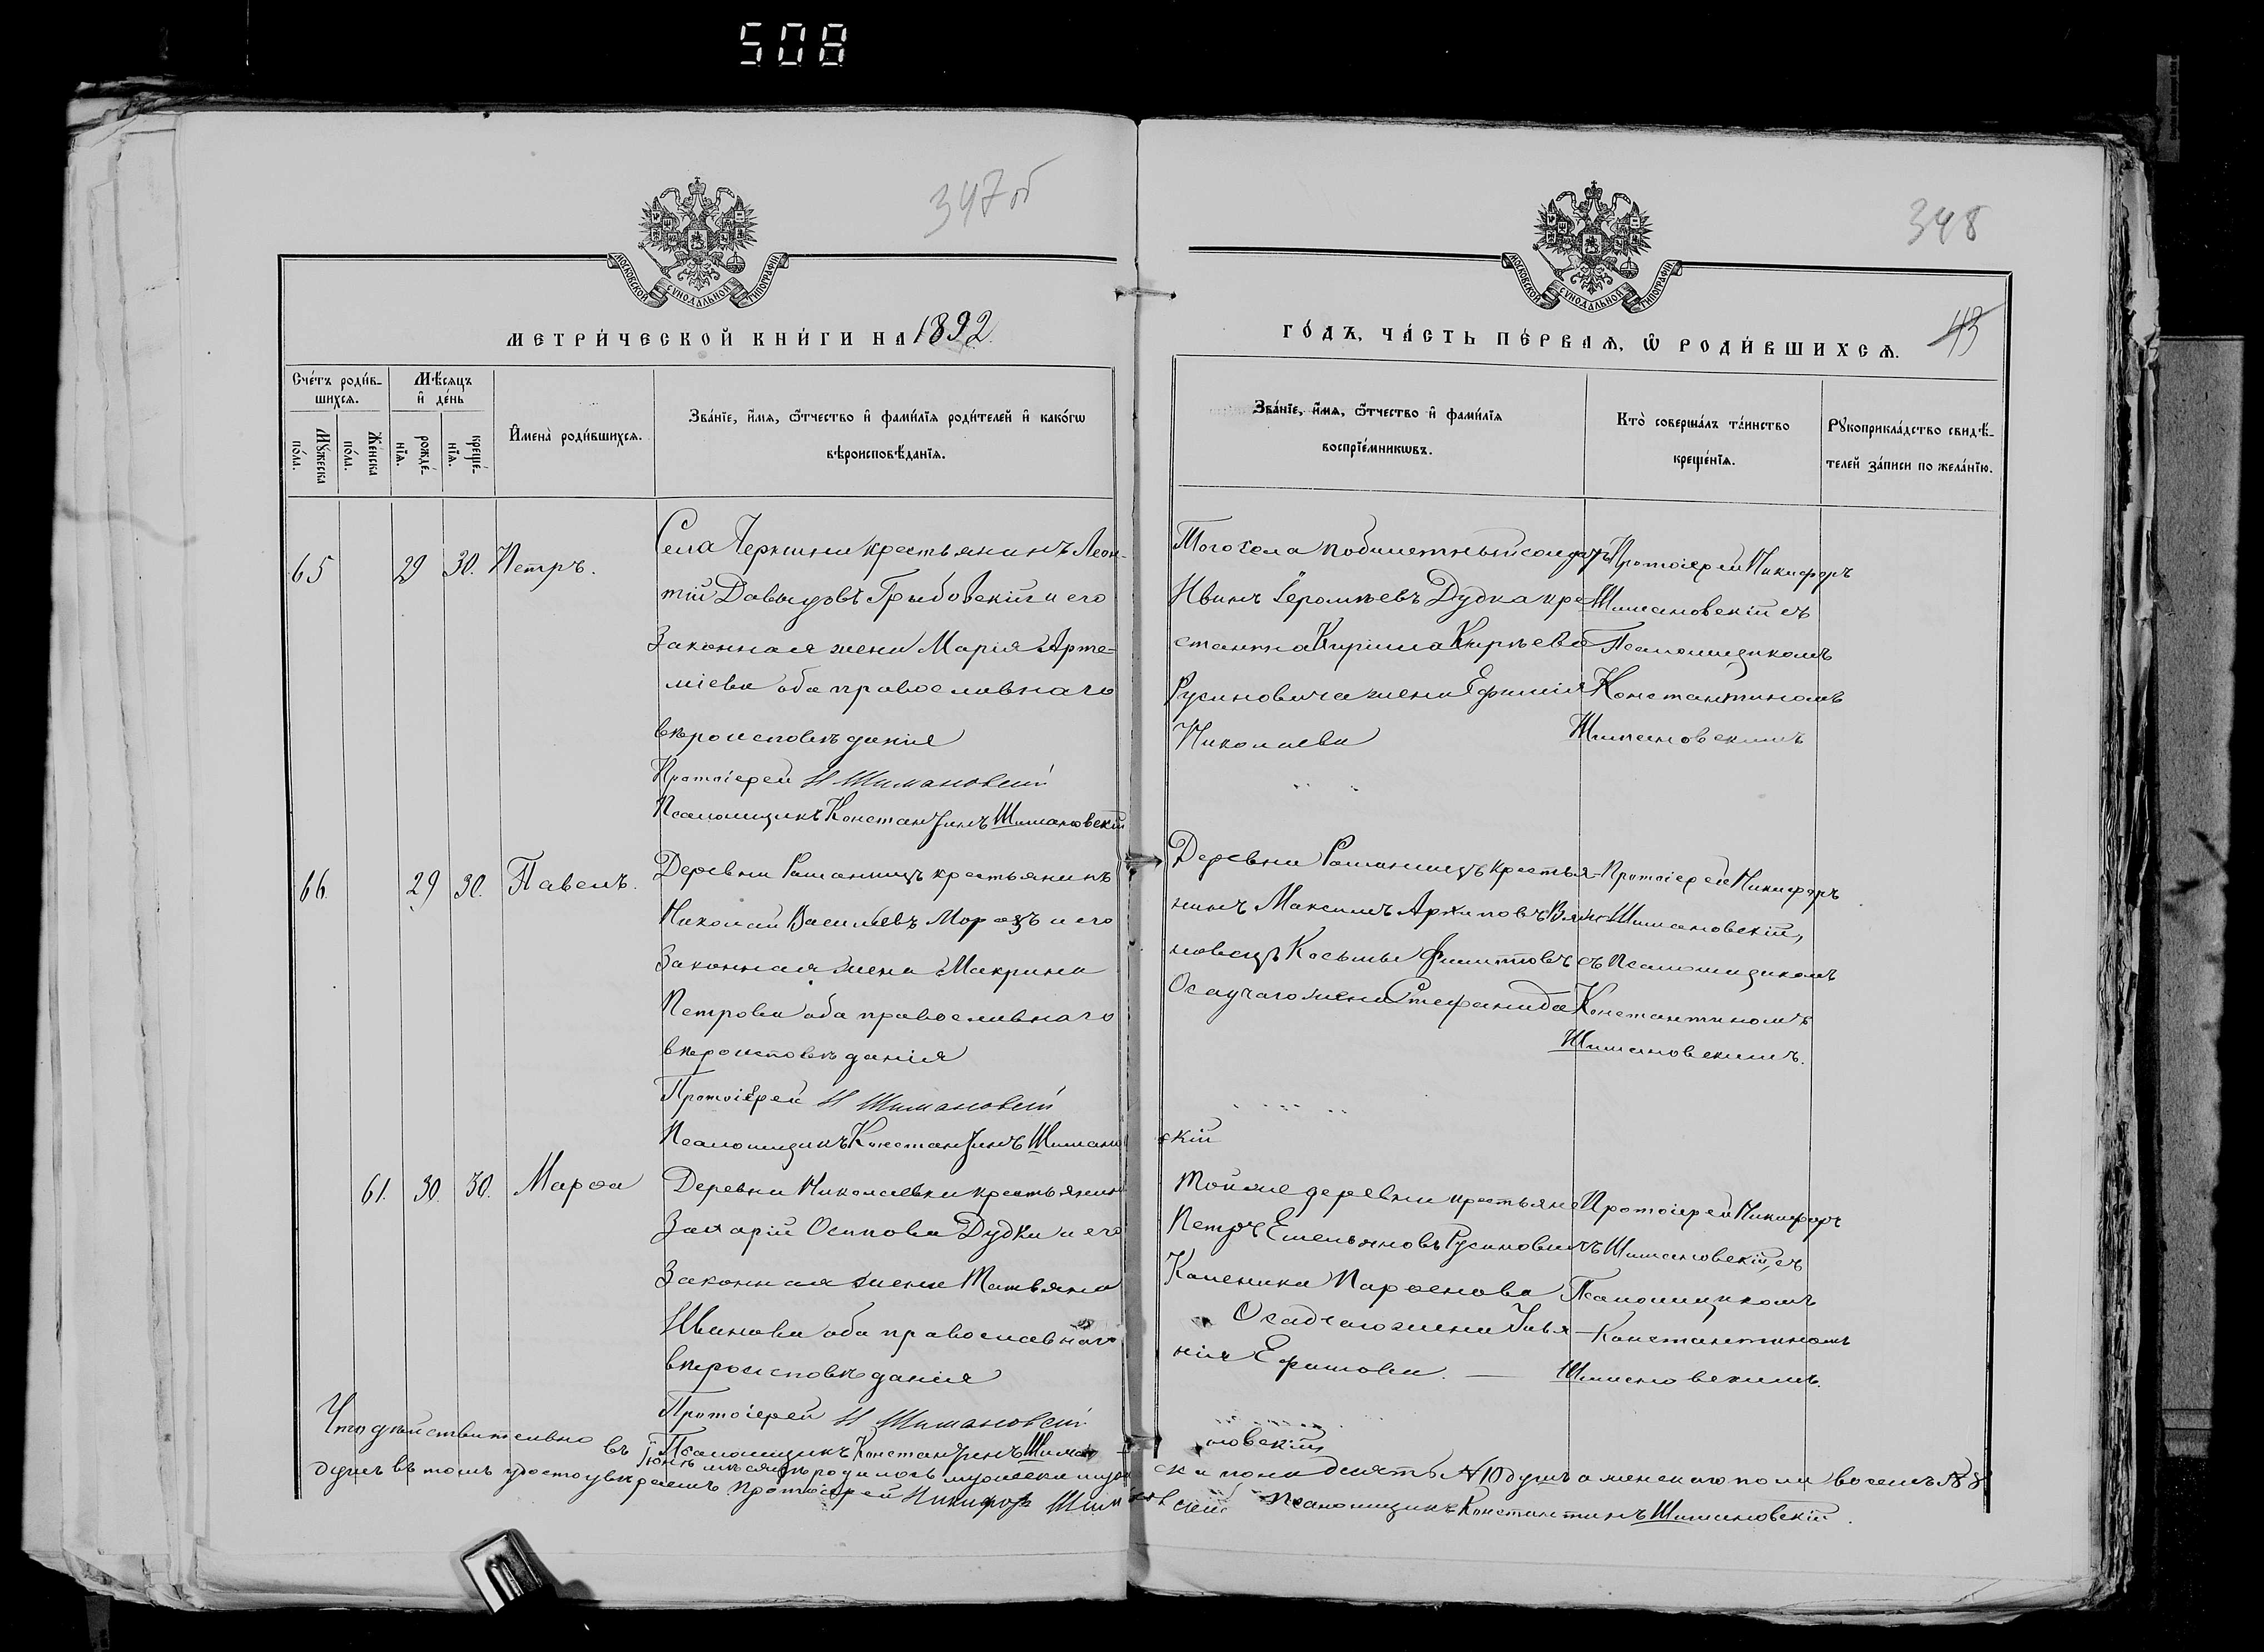 508
347об
348
МОСКОВСКОЙ СѴНОДАЛЬНОЙ ТИПОГРАФІИ
МОСКОВСКОЙ СѴНОДАЛЬНОЙ ТИПОГРАФІИ
МЕТРИ́ЧЕСКОЙ КНИ́ГИ НА 1892
ГО́ДЪ, ЧА́СТЬ ПЕ́РВАѦ, Ѡ҆ РОДИ́ВШИХСѦ.
43
Сче́тъ роди́в-
шихсѧ.
Мꙋ́жеска
по́ла.
Же́нска
по́ла.
Мѣ́сѧцъ
и҆ де́нь
рожде́-
нїѧ.
креще́-
нїѧ.
И҆мена̀ роди́вшихсѧ.
Зва́нїе, и҆́мѧ, ѻ҆́тчество и҆ фами́лїѧ роди́телей и҆ како́гѡ
вѣроисповѣ́данїѧ.
Зва́нїе, и҆́мѧ, ѻ҆́тчество и҆ фами́лїѧ
воспрїе́мникѡвъ.
Кто̀ соверша́лъ та́инство
креще́нїѧ.
Рꙋкоприкла́дство свидѣ́-
телей за́писи по жела́нїю.
65 29 30. Петръ.
Села Черкини крестьянинъ Леон-
тій Давыдовъ Грыбовскій и его
Законная жена Марія Арте-
міева оба православнаго
вѣроисповѣданія
Протоіерей Н Шимановскій
Псаломщикъ Константинъ Шимановскій
Того села побилетный солдатъ
Иванъ Еромѣевъ Дудка кре
стьянина Кирилла Кирѣева
Русиновича жена Ефимія
Николаева
Протоіерей Никифоръ
Шимановскій съ
Псаломщикомъ
Константиномъ
Шимановскимъ
66. 29 30. Павелъ.
Деревни крестьянинъ
Николай Васильевъ Морозъ и его
Законная жена Макрина
Петрова оба православнаго
вѣроисповѣданія
Протоіерей Н Шимановскій
Псаломщикъ Константинъ Шимановскій
Деревни крестья-
нинъ Максимъ Архиповъ
Косьмы Филиповъ
Осадчаго жена Стефанида
Протоіерей Никифоръ
Шимановскій,
съ Псаломщикомъ
Константиномъ
Шимановскимъ.
61. 30. 30. Марѳа
Деревни Николаевки крестьянинъ
Захарій Осипова Дудки и его
Законная жена Татьяна
Иванова оба православнаго
вѣроисповѣданія
Протоіерей Н Шимановскій
Псаломщикъ Константинъ Шимановскій
Той же деревни крестьяне
Петръ Емельяновъ Русиновичъ
Каленика Парѳенова
Осадчаго жена Улья-
нія Ефимова.
Протоіерей Никифоръ
Шимановскій, съ
Псаломщикомъ
Константиномъ
Шимановскимъ.
Что дѣйствительно въ Іюнѣ мѣсяцѣ родилось мужеска пола десять №10 душъ а женскаго пола восемь №8
душъ въ томъ удостовѣряемъ Протоіерей Никифоръ Шимановскій Псаломщикъ Константинъ Шимановскій.